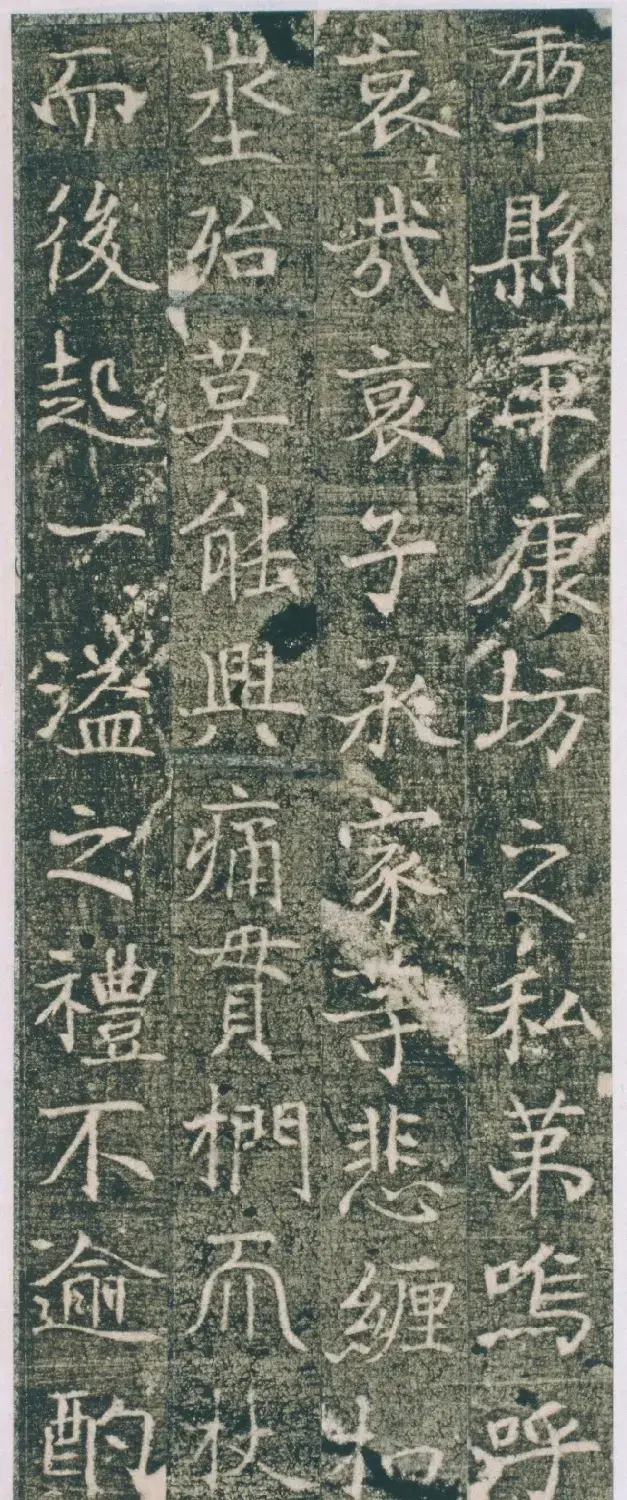 年縣平康坊之私第嗚呼
哀哉哀子承家等悲纏扣
埊殆莫能興痛貫椚而杖
而後起一溢之禮不逾酌